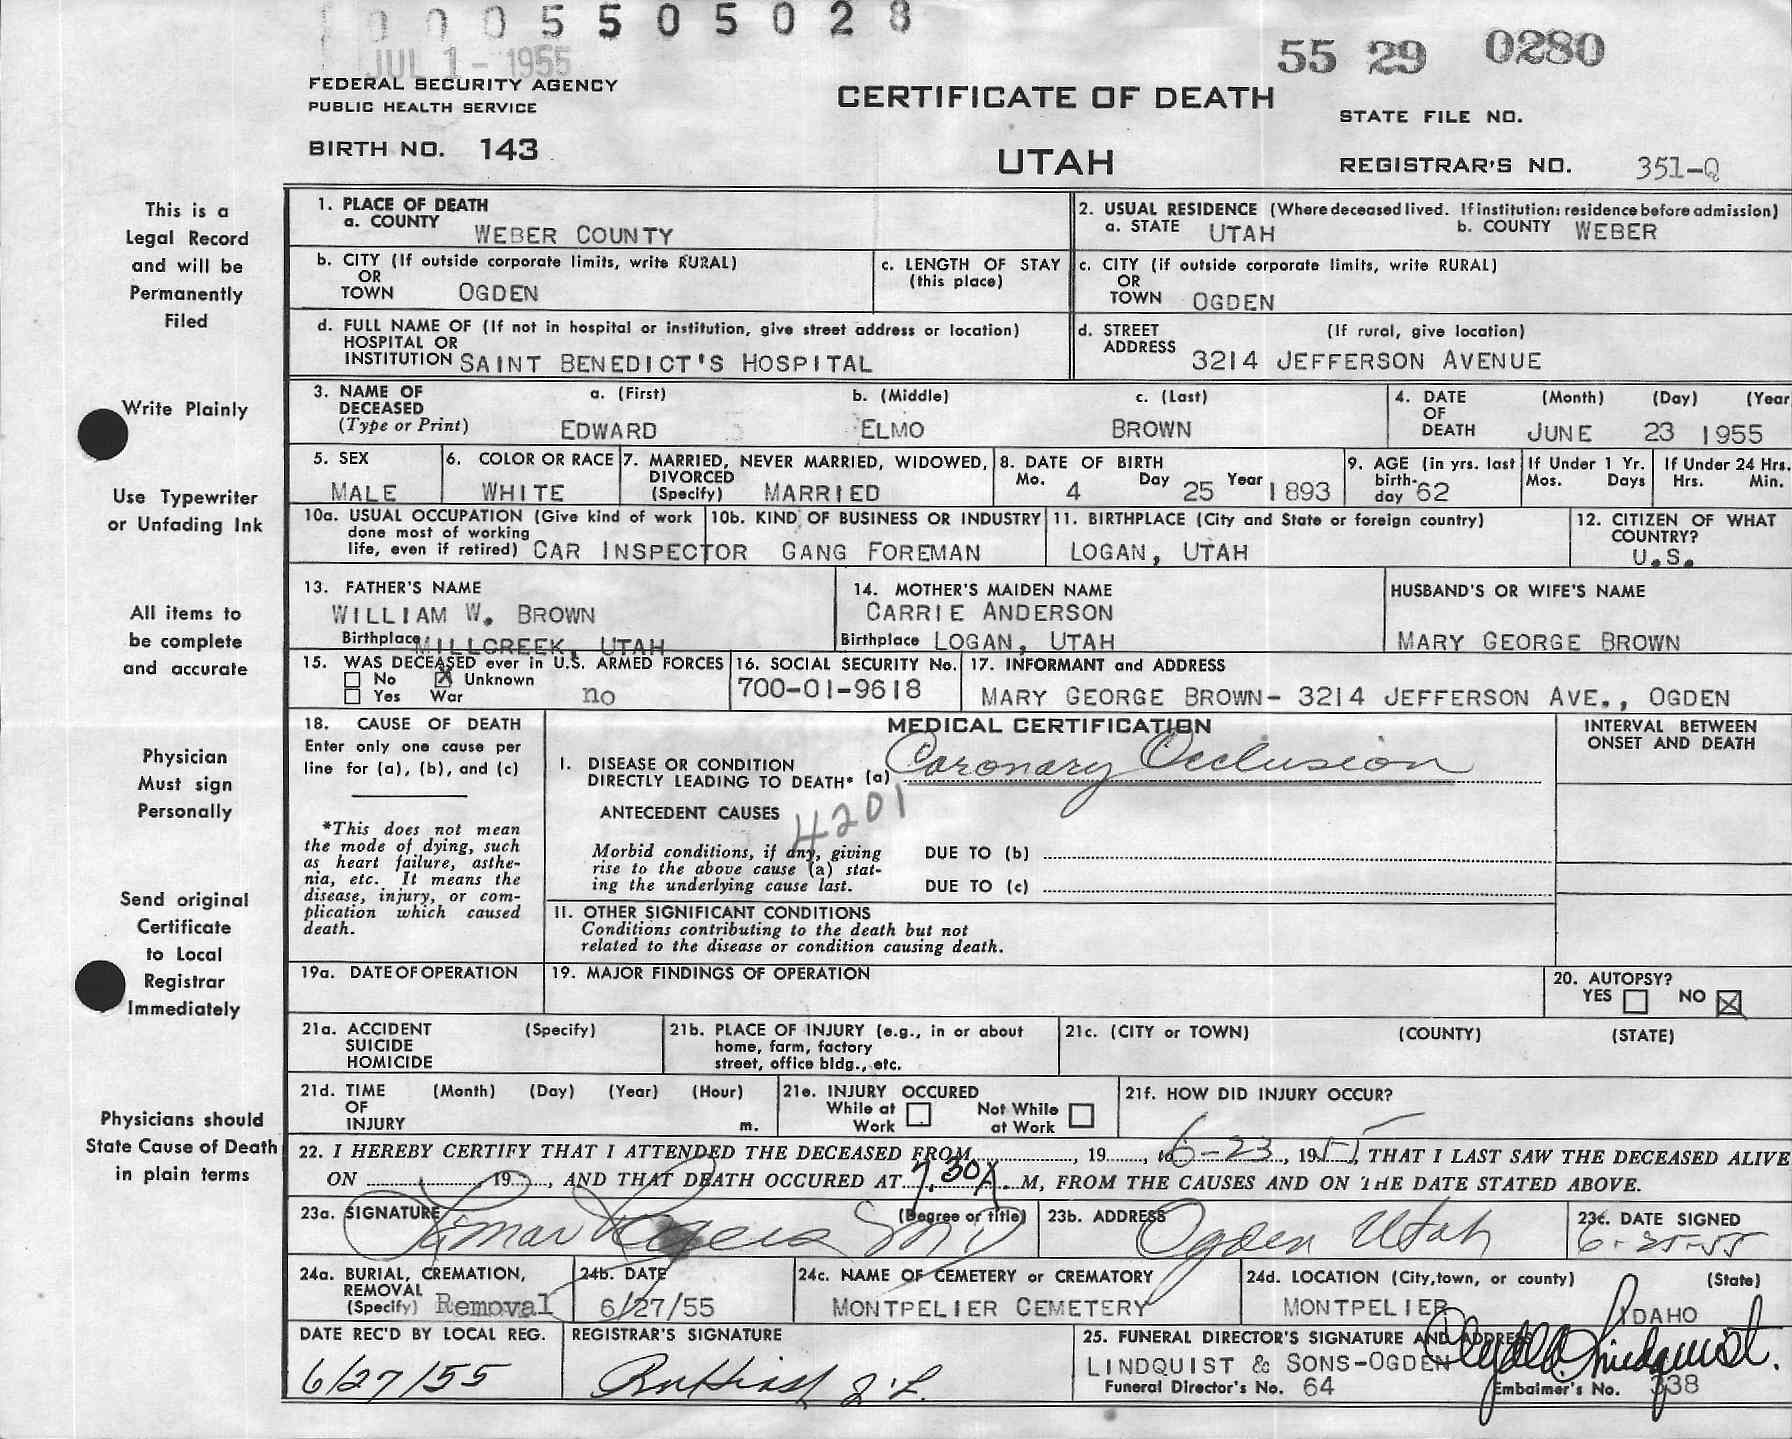 0005505028
JUL 1 - 1955
55 29 0280
FEDERAL SECURITY AGENCY
PUBLIC HEALTH SERVICE
CERTIFICATE OF DEATH
STATE FILE NO.
BIRTH NO. 143
UTAH
REGISTRAR'S NO. 351-Q
This is a
Legal Record
and will be
Permanently
Filed
Write Plainly
Use Typewriter
or Unfading Ink
All items to
be complete
and accurate
Physician
Must sign
Personally
Send original
Certificate
to Local
Registrar
Immediately
Physicians should
State Cause of Death
in plain terms
1. PLACE OF DEATH
a. COUNTY WEBER COUNTY
2. USUAL RESIDENCE (Where deceased lived. If institution: residence before admission)
a. STATE UTAH b. COUNTY WEBER
b. CITY (If outside corporate limits, write RURAL)
OR
TOWN OGDEN
c. LENGTH OF STAY
(this place)
c. CITY (if outside corporate limits, write RURAL)
OR
TOWN OGDEN
d. FULL NAME OF (If not in hospital or institution, give street address or location)
HOSPITAL OR
INSTITUTION SAINT BENEDICT'S HOSPITAL
d. STREET (If rural, give location)
ADDRESS 3214 JEFFERSON AVENUE
3. NAME OF DECEASED
(Type or Print)
a. (First) b. (Middle) c. (Last)
EDWARD ELMO BROWN
4. DATE OF DEATH
(Month) (Day) (Year
JUNE 23 1955
5. SEX
MALE
6. COLOR OR RACE
WHITE
7. MARRIED, NEVER MARRIED, WIDOWED,
DIVORCED
(Specify) MARRIED
8. DATE OF BIRTH
Mo. 4 Day 25 Year 1893
9. AGE (in yrs. last
birth-
day 62
If Under 1 Yr.
Mos. Days
If Under 24 Hrs.
Hrs. Min.
10a. USUAL OCCUPATION (Give kind of work
done most of working
life, even if retired) CAR INSPECTOR
10b. KIND OF BUSINESS OR INDUSTRY
GANG FOREMAN
11. BIRTHPLACE (City and State or foreign country)
LOGAN, UTAH
12. CITIZEN OF WHAT
COUNTRY?
U.S.
13. FATHER'S NAME
WILLIAM W. BROWN
Birthplace MILLCREEK, UTAH
14. MOTHER'S MAIDEN NAME
CARRIE ANDERSON
Birthplace LOGAN, UTAH
HUSBAND'S OR WIFE'S NAME
MARY GEORGE BROWN
15. WAS DECEASED ever in U.S. ARMED FORCES
No X Unknown
Yes War no
16. SOCIAL SECURITY No.
700-01-9618
17. INFORMANT and ADDRESS
MARY GEORGE BROWN- 3214 JEFFERSON AVE., OGDEN
18. CAUSE OF DEATH
Enter only one cause per
line for (a), (b), and (c)
*This does not mean
the mode of dying, such
as heart failure, asthe-
nia, etc. It means the
disease, injury, or com-
plication which caused
death.
MEDICAL CERTIFICATION
I. DISEASE OR CONDITION
DIRECTLY LEADING TO DEATH* (a) Coronary Occlusion
ANTECEDENT CAUSES 4201
Morbid conditions, if any, giving
rise to the above cause (a) stat-
ing the underlying cause last.
DUE TO (b)
DUE TO (c)
II. OTHER SIGNIFICANT CONDITIONS
Conditions contributing to the death but not
related to the disease or condition causing death.
INTERVAL BETWEEN
ONSET AND DEATH
19a. DATE OF OPERATION
19. MAJOR FINDINGS OF OPERATION
20. AUTOPSY?
YES NO X
21a. ACCIDENT (Specify)
SUICIDE
HOMICIDE
21b. PLACE OF INJURY (e.g., in or about
home, farm, factory
street, office bldg., etc.
21c. (CITY or TOWN) (COUNTY) (STATE)
21d. TIME (Month) (Day) (Year) (Hour)
OF
INJURY m.
21e. INJURY OCCURED
While at Work Not While at Work
21f. HOW DID INJURY OCCUR?
22. I HEREBY CERTIFY THAT I ATTENDED THE DECEASED FROM, 19, to 6-23, 1955, THAT I LAST SAW THE DECEASED ALIVE
ON, 19, AND THAT DEATH OCCURED AT 7:30A M, FROM THE CAUSES AND ON THE DATE STATED ABOVE.
23a. SIGNATURE (Degree or title)
Lamar Rogers MD
23b. ADDRESS
Ogden Utah
23c. DATE SIGNED
6-25-55
24a. BURIAL, CREMATION,
REMOVAL
(Specify) Removal
24b. DATE
6/27/55
24c. NAME OF CEMETERY or CREMATORY
MONTPELIER CEMETERY
24d. LOCATION (City, town, or county) (State)
MONTPELIER IDAHO
DATE REC'D BY LOCAL REG.
6/27/55
REGISTRAR'S SIGNATURE
25. FUNERAL DIRECTOR'S SIGNATURE AND ADDRESS
LINDQUIST & SONS-OGDEN Clyde Lindquist.
Funeral Director's No. 64 Embalmer's No. 338